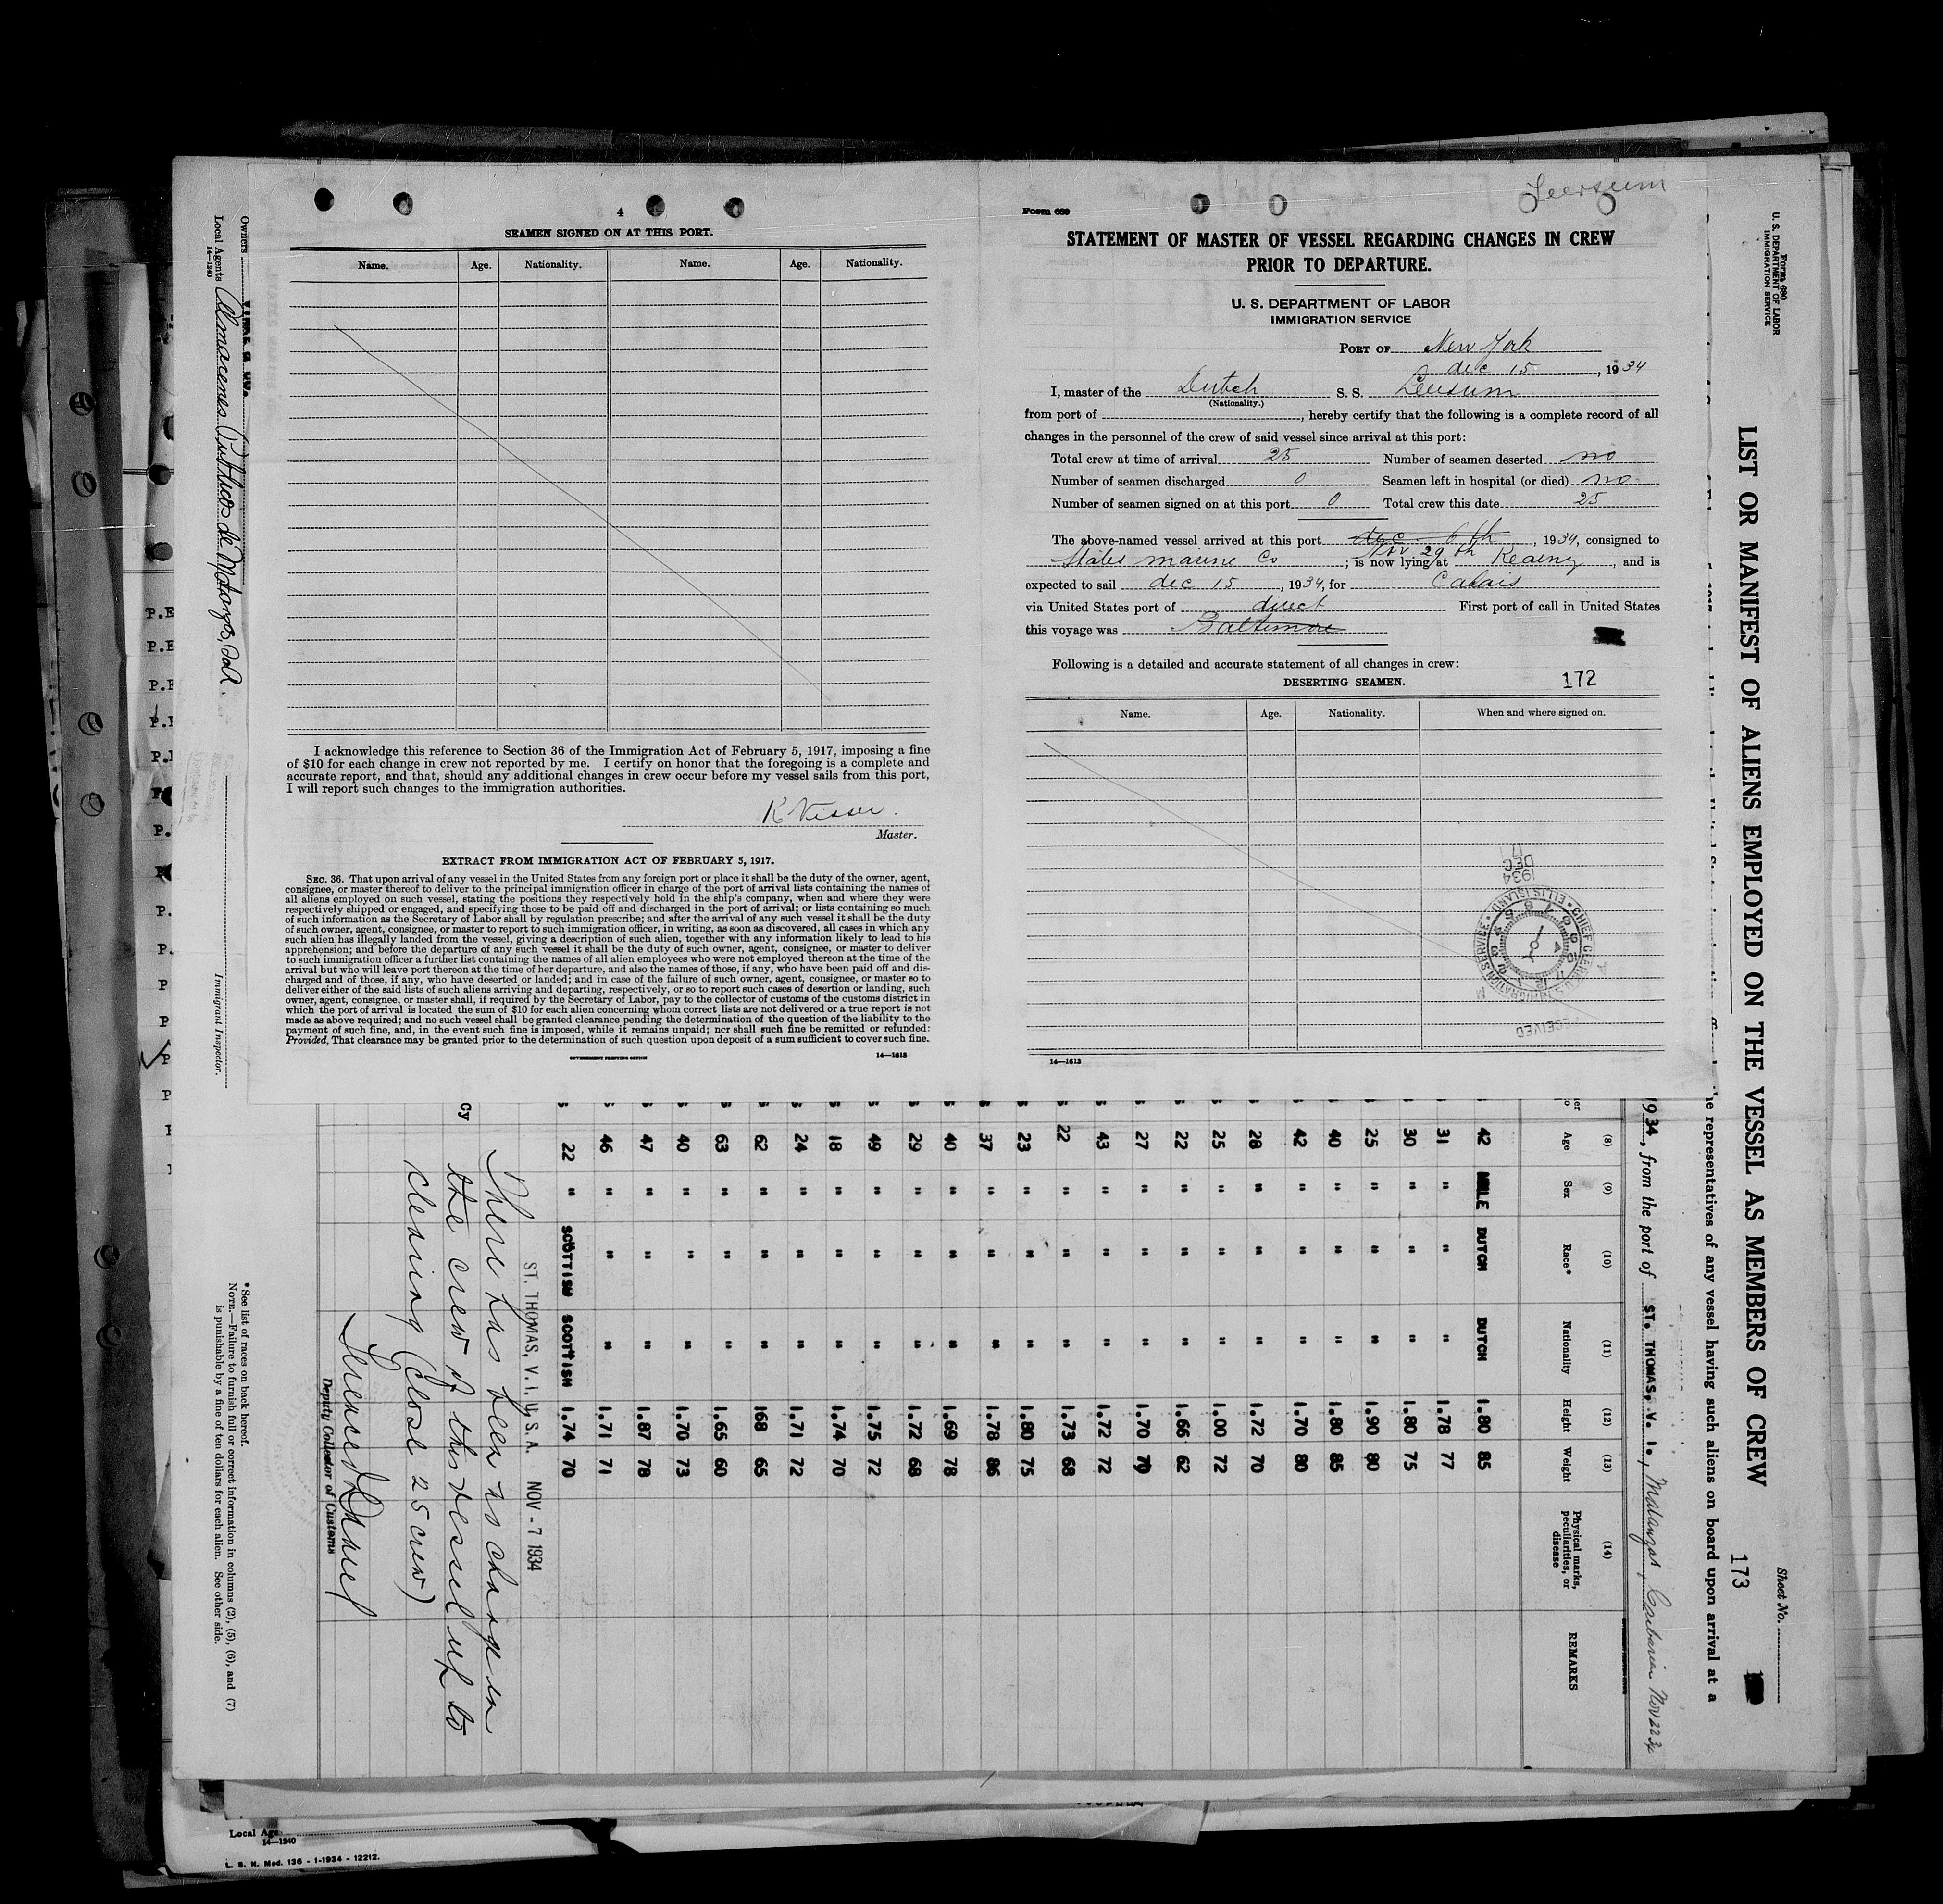 4
SEAMEN SIGNED ON AT THIS PORT.
Name. Age. Nationality. Name. Age. Nationality.
I acknowledge this reference to Section 36 of the Immigration Act of February 5, 1917, imposing a fine
of $10 for each change in crew not reported by me. I certify on honor that the foregoing is a complete and
accurate report, and that, should any additional changes in crew occur before my vessel sails from this port,
I will report such changes to the immigration authorities.
K Visser.
Master.
EXTRACT FROM IMMIGRATION ACT OF FEBRUARY 5, 1917.
SEC. 36. That upon arrival of any vessel in the United States from any foreign port or place it shall be the duty of the owner, agent,
consignee, or master thereof to deliver to the principal immigration officer in charge of the port of arrival lists containing the names of
all aliens employed on such vessel, stating the positions they respectively hold in the ship's company, when and where they were
respectively shipped or engaged, and specifying those to be paid off and discharged in the port of arrival; or lists containing so much
of such information as the Secretary of Labor shall by regulation prescribe; and after the arrival of any such vessel it shall be the duty
of such owner, agent, consignee, or master to report to such immigration officer, in writing, as soon as discovered, all cases in which any
such alien has illegally landed from the vessel, giving a description of such alien, together with any information likely to lead to his
apprehension; and before the departure of any such vessel it shall be the duty of such owner, agent, consignee, or master to deliver
to such immigration officer a further list containing the names of all alien employees who were not employed thereon at the time of the
arrival but who will leave port thereon at the time of her departure, and also the names of those, if any, who have been paid off and dis-
charged and of those, if any, who have deserted or landed; and in case of the failure of such owner, agent, consignee, or master so to
deliver either of the said lists of such aliens arriving and departing, respectively, or so to report such cases of desertion or landing, such
owner, agent, consignee, or master shall, if required by the Secretary of Labor, pay to the collector of customs of the customs district in
which the port of arrival is located the sum of $10 for each alien concerning whom correct lists are not delivered or a true report is not
made as above required; and no such vessel shall be granted clearance pending the determination of the question of the liability to the
payment of such fine, and, in the event such fine is imposed, while it remains unpaid; nor shall such fine be remitted or refunded:
Provided, That clearance may be granted prior to the determination of such question upon deposit of a sum sufficient to cover such fine.
GOVERNMENT PRINTING OFFICE 14—1613
Leersum
Form 689
STATEMENT OF MASTER OF VESSEL REGARDING CHANGES IN CREW
PRIOR TO DEPARTURE.
U. S. DEPARTMENT OF LABOR
IMMIGRATION SERVICE
PORT OF New York
dec 15, 1934
I, master of the Dutch S. S. Leersum
(Nationality.)
from port of , hereby certify that the following is a complete record of all
changes in the personnel of the crew of said vessel since arrival at this port:
Total crew at time of arrival 25 Number of seamen deserted no
Number of seamen discharged 0 Seamen left in hospital (or died) no
Number of seamen signed on at this port 0 Total crew this date 25
The above-named vessel arrived at this port dec 6th, 1934, consigned to
Nov 29th
States marine Co ; is now lying at Kearny, and is
expected to sail dec 15, 1934, for Calais
via United States port of direct First port of call in United States
this voyage was Baltimore
Following is a detailed and accurate statement of all changes in crew:
172
DESERTING SEAMEN.
Name. Age. Nationality. When and where signed on.
1934 DEC 17
IMMIGRATION SERVICE ELLIS ISLAND CHIEF CLERK
RECEIVED
14—1613
Form 680
U. S. DEPARTMENT OF LABOR
IMMIGRATION SERVICE
Sheet No.
LIST OR MANIFEST OF ALIENS EMPLOYED ON THE VESSEL AS MEMBERS OF CREW
173
the representatives of any vessel having such aliens on board upon arrival at a
1934, from the port of ST. THOMAS, V. I., Matanzas, Caibarien Nov 22 34
(8) (9) (10) (11) (12) (13) (14)
Age Sex Race* Nationality Height Weight Physical marks, peculiarities, or disease REMARKS
42 MALE DUTCH DUTCH 1.80 85
31 " " " 1.78 77
30 " " " 1.80 75
25 " " " 1.90 80
40 " " " 1.80 85
42 " " " 1.70 80
28 " " " 1.72 70
25 " " " 1.00 72
22 " " " 1.66 62
27 " " " 1.70 70
43 " " " 1.72 72
22 " " " 1.73 68
23 " " " 1.80 75
37 " " " 1.78 86
40 " " " 1.69 78
29 " " " 1.72 68
49 " " " 1.75 72
18 " " " 1.74 70
24 " " " 1.71 72
62 " " " 168 65
63 " " " 1.65 60
40 " " " 1.70 73
47 " " " 1.87 78
46 " " " 1.71 71
22 " SCOTTISH SCOTTISH 1.74 70
ST. THOMAS, V. I., U. S. A. NOV - 7 1934
There has been no change in
the crew of this vessel up to
clearing (Close 25 crew)
Deputy Collector of Customs
*See list of races on back hereof.
NOTE.—Failure to furnish full or correct information in columns (2), (5), (6), and (7)
is punishable by a fine of ten dollars for each alien. See other side.
Owners
Local Agents Almacenes Publicos de Matanzas, S.A.
14—1240
Immigrant Inspector.
Local Age
14—1240
L. S. N. Med. 136 - 1-1934 - 12212.